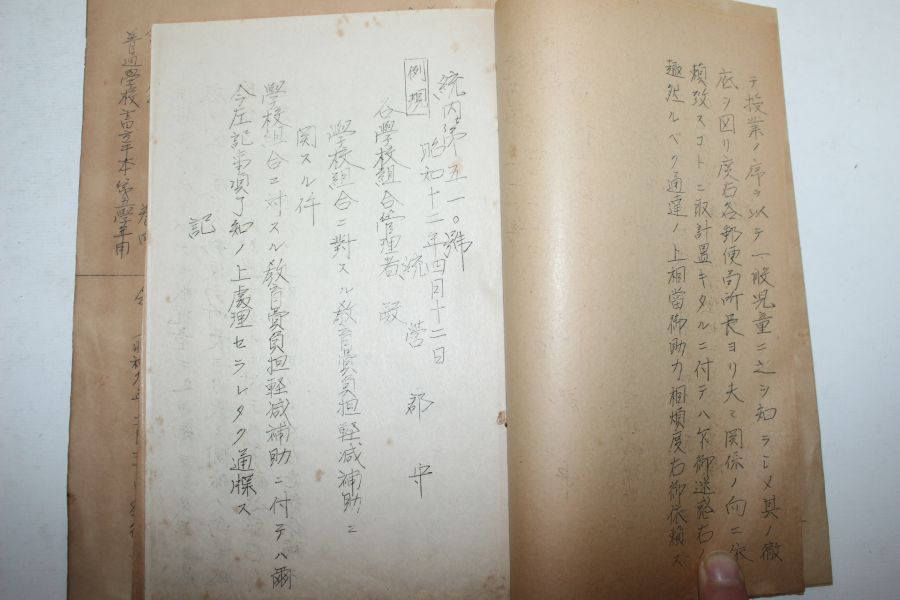 テ授業ノ序ヲ以テ一般児童ニ之ヲ知ラシメ其ノ徹
底ヲ図リ度右各郵便局所長ヨリ夫々関係ノ向ニ依
頼致スコトニ取計置キタルニ付テハ乍御迷惑右ノ
趣然ルベク通達ノ上相当御助力相煩度右御依頼ス
統内第五一〇號
例規
昭和十二年四月十二日
統營郡守
各學校組合管理者殿
學校組合ニ對スル教育費負担軽減補助ニ
関スル件
學校組合ニ対スル教育費負担軽減補助ニ付テハ爾
今左記事項了知ノ上處理セラレタク通牒ス
記
普通學校